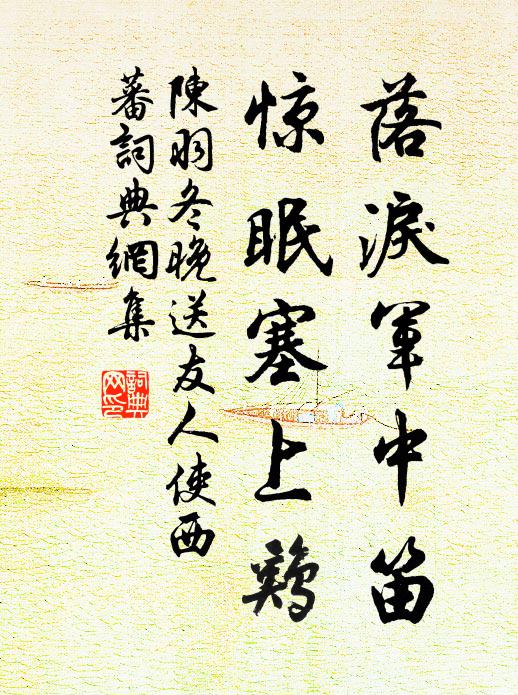 落淚軍中笛
惊眠塞上鷄
陳羽冬晚送友人使西
蕃詞典網集
詞典网印